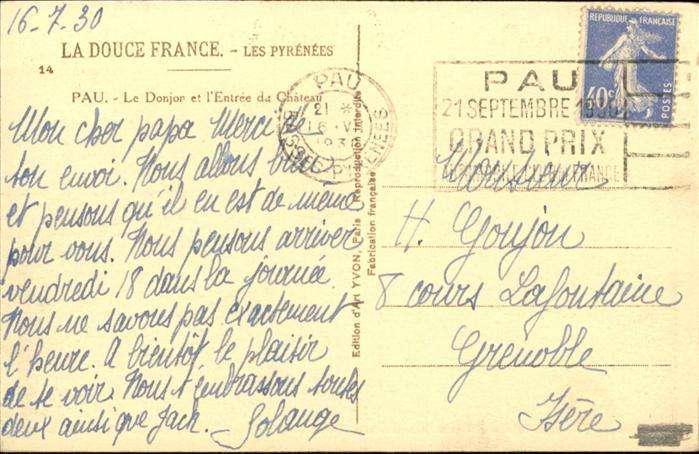 16-7.30
LA DOUCE FRANCE. - LES PYRÉNÉES
14
PAU. - Le Donjon et l'Entrée du Château
Mon cher papa Merci de
ton envoi. Nous allons bien
et pensons qu'il en est de même
pour vous. Nous pensons arriver
vendredi 18 dans la journée.
Nous ne savons pas exactement
l'heure. A bientôt le plaisir
de te voir. Nous t'embrassons toutes
deux ainsi que Jack. Solange
Edition d'Art YVON, Paris Reproduction interdite
Fabrication française
PAU
21
16 - VII
PYRÉNÉES
RÉPUBLIQUE FRANÇAISE
40c
POSTES
PAU
21 SEPTEMBRE 1930
GRAND PRIX
AUTOMOBILE CLUB DE FRANCE
Monsieur
H. Goujon
8 cours Lafontaine
Grenoble
Isère